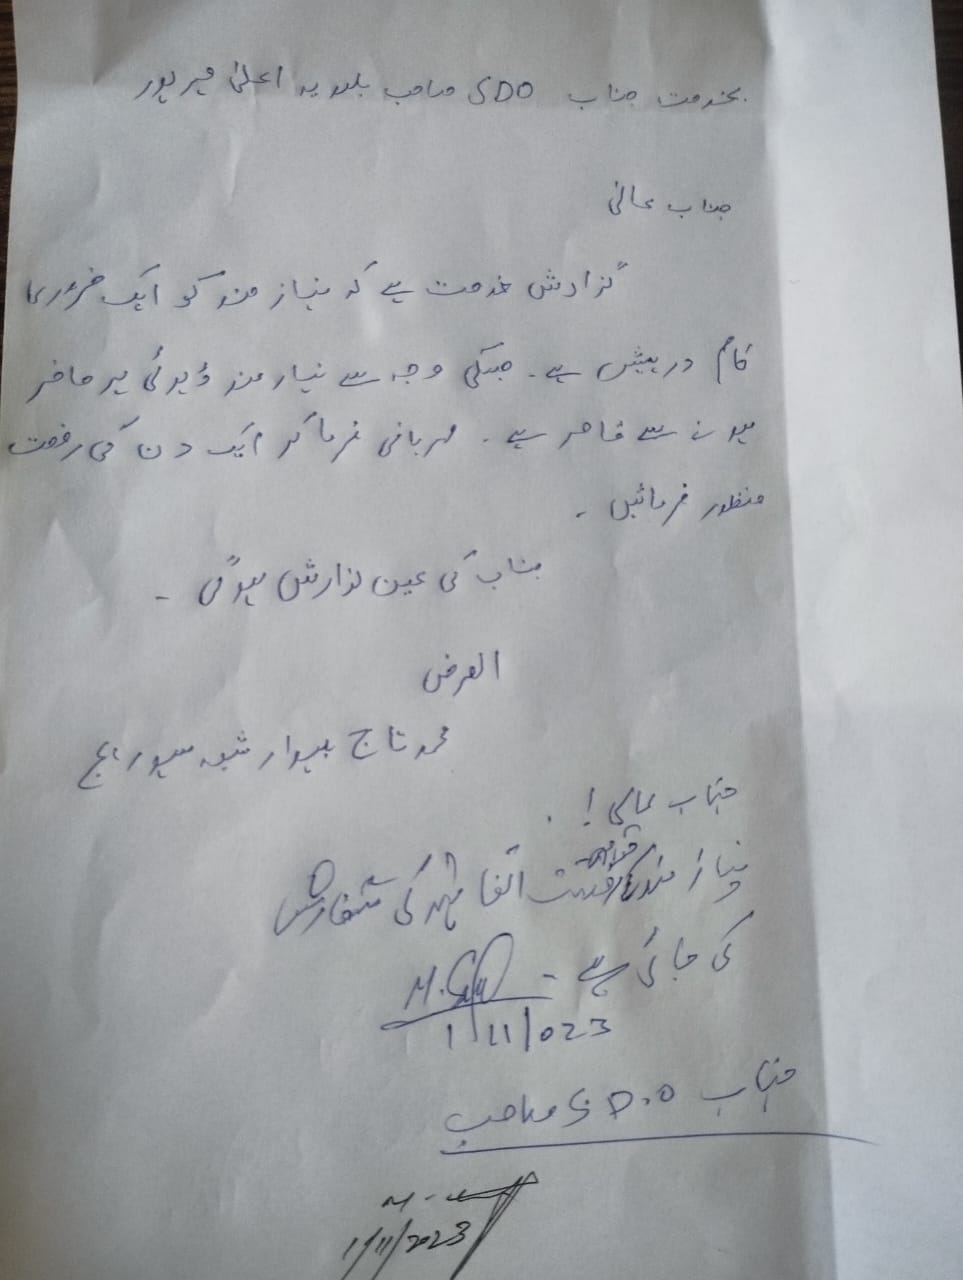 بخدمت جناب SDO صاحب بلدیہ اعلیٰ میرپور
جناب عالی
گزارش خدمت ہے کہ نیاز مند کو ایک ضروری
کام درپیش ہے۔ جسکی وجہ سے نیاز مند ڈیوٹی پر حاضر
ہونے سے قاصر ہے۔ مہربانی فرما کر ایک دن کی رخصت
منظور فرمائیں۔
جناب کی عین نوازش ہوگی۔
العرض
محمد تاج بیلدار شعبہ سیوریج
جناب عالی!
نیاز مند رخصت اتفاقیہ کی سفارش
کی جاتی ہے۔
1/11/023
جناب S.D.O صاحب
1/11/2023